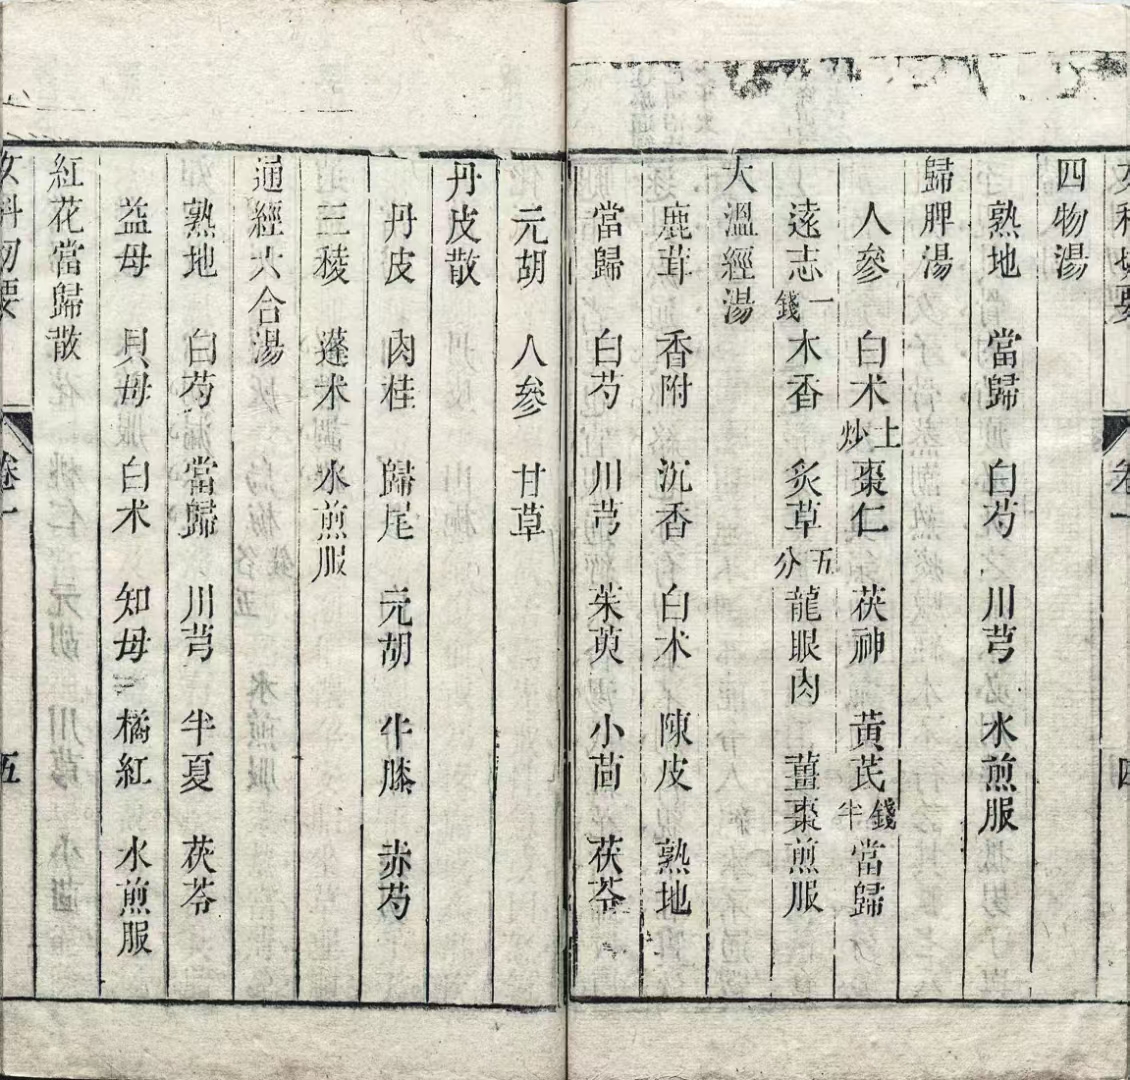 女科切要 卷一 四
四物湯
熟地 當歸 白芍 川芎 水煎服
歸脾湯
人參 白术土炒 棗仁 茯神 黃芪錢半 當歸
遠志一錢 木香 炙草五分 龍眼肉 薑棗煎服
大溫經湯
鹿茸 香附 沉香 白术 陳皮 熟地
當歸 白芍 川芎 茱萸 小茴 茯苓
元胡 人參 甘草
丹皮散
丹皮 肉桂 歸尾 元胡 牛膝 赤芍
三稜 蓬术 水煎服
通經六合湯
熟地 白芍 當歸 川芎 半夏 茯苓
益母 貝母 白术 知母 橘紅 水煎服
紅花當歸散
女科切要 卷一 五